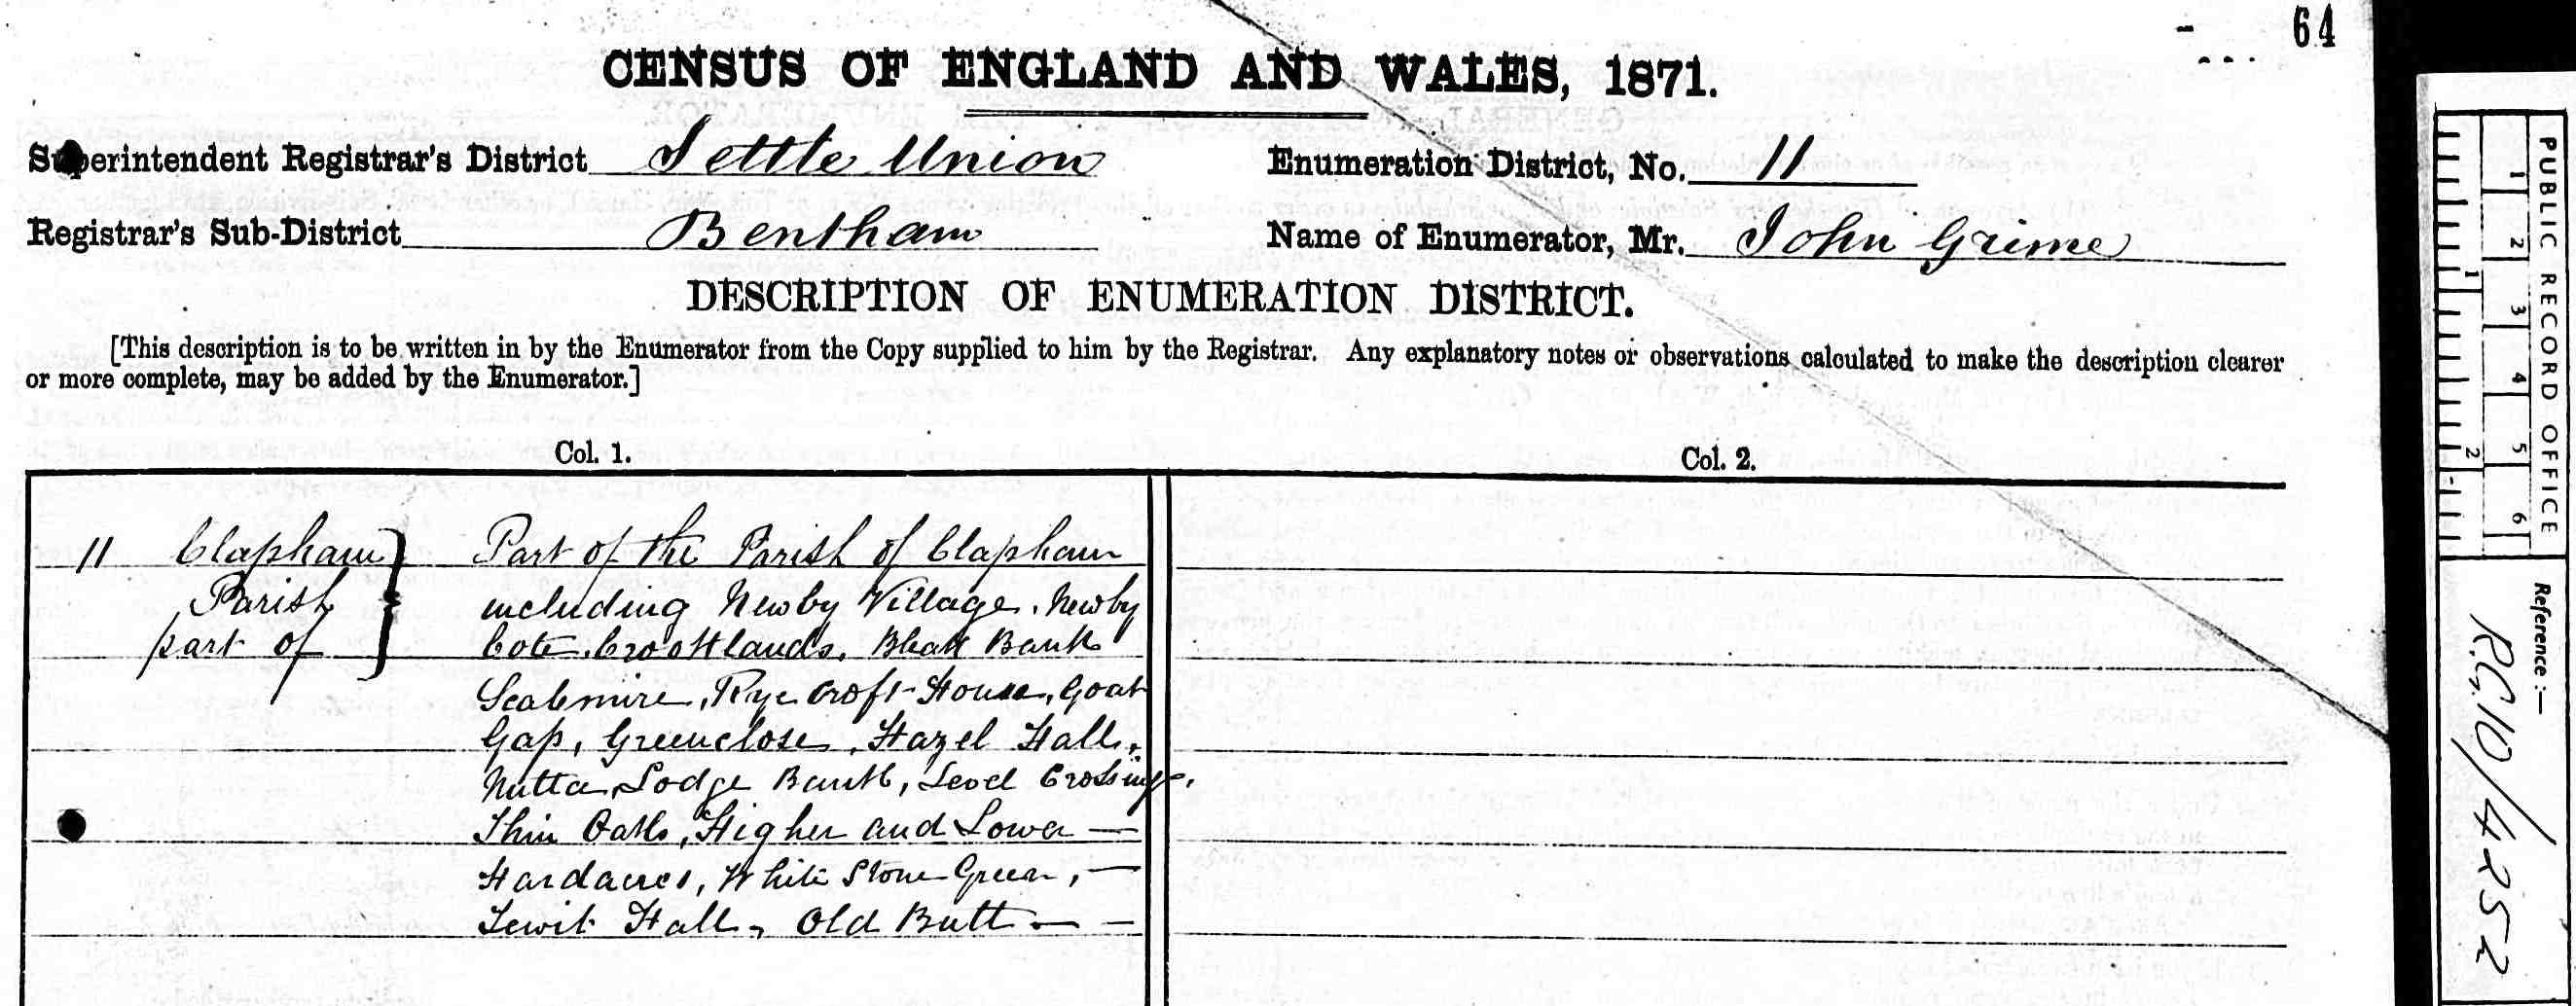 64
CENSUS OF ENGLAND AND WALES, 1871.
Superintendent Registrar's District Settle Union
Enumeration District, No. 11
Registrar's Sub-District Bentham
Name of Enumerator, Mr. John Grime
DESCRIPTION OF ENUMERATION DISTRICT.
[This description is to be written in by the Enumerator from the Copy supplied to him by the Registrar. Any explanatory notes or observations calculated to make the description clearer
or more complete, may be added by the Enumerator.]
Col. 1.
Col. 2.
11 Clapham } Part of the Parish of Clapham
Parish including Newby Village, Newby
part of Cote, Crooklands, Bleak Bank
Scalemire, Rye Croft House, Goat
Gap, Greenclose, Hazel Hall,
Nutta, Lodge Bank, Level Crossings,
Thin Oaks, Higher and Lower —
Hardacres, White Stone Green, —
Tewit Hall, Old Butt — —
PUBLIC RECORD OFFICE
1 2 3 4 5 6
1 2
Reference :—
R.G. 10/4252